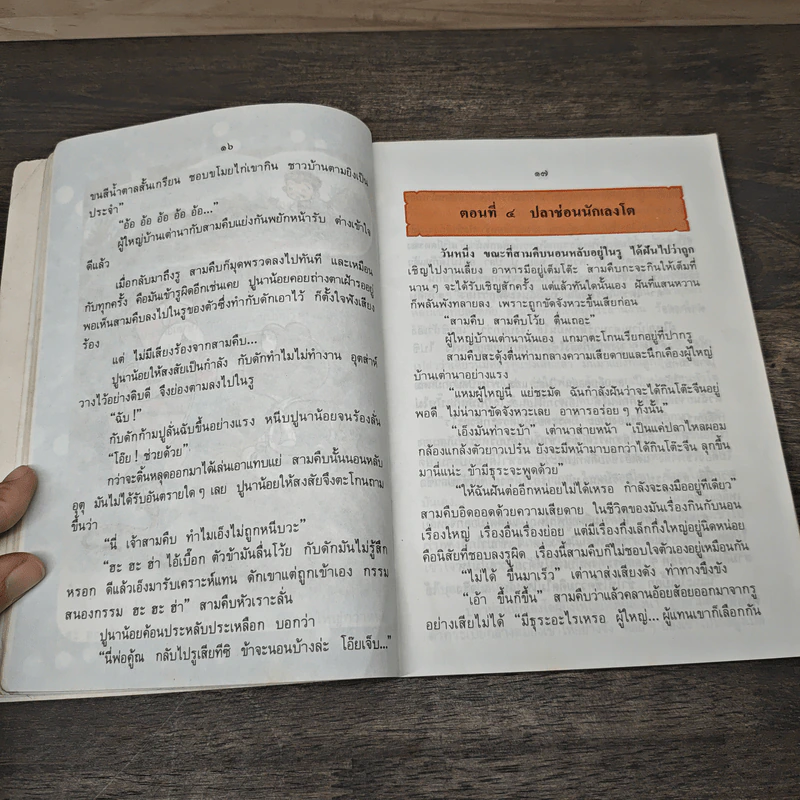 ๑๖
ขนสีน้ำตาลสั้นเกรียน ชอบขโมยไก่เขากิน ชาวบ้านตามยิงเป็น
ประจำ”
“อ้อ อ้อ อ้อ อ้อ อ้อ...”
ผู้ใหญ่บ้านเต่านากับสามคืบแย่งกันพยักหน้ารับ ต่างเข้าใจ
ดีแล้ว
เมื่อกลับมาถึงรู สามคืบก็มุดพรวดลงไปทันที และเหมือน
กับทุกครั้ง คือมันเข้ารูผิดอีกเช่นเคย ปูนาน้อยคอยถ่างตาเฝ้ารออยู่
พอเห็นสามคืบลงไปในรูของตัวซึ่งทำกับดักเอาไว้ ก็ตั้งใจฟังเสียง
ร้อง
แต่ ไม่มีเสียงร้องจากสามคืบ...
ปูนาน้อยให้สงสัยเป็นกำลัง กับดักทำไมไม่ทำงาน อุตส่าห์
วางไว้อย่างดิบดี จึงย่องตามลงไปในรู
“ฉับ !”
กับดักก้ามปูลั่นฉับขึ้นอย่างแรง หนีบปูนาน้อยจนร้องลั่น
“โอ๊ย ! ช่วยด้วย”
กว่าจะดิ้นหลุดออกมาได้เล่นเอาแทบแย่ สามคืบนั้นนอนหลับ
อุตุ มันไม่ได้รับอันตรายใด ๆ เลย ปูนาน้อยให้สงสัยจึงตะโกนถาม
ขึ้นว่า
“นี่ เจ้าสามคืบ ทำไมเอ็งไม่ถูกหนีบวะ”
“ฮะ ฮะ ฮ่า ไอ้เบื๊อก ตัวข้ามันลื่นโว้ย กับดักมันไม่รู้สึก
หรอก ดีแล้วเอ็งมารับเคราะห์แทน ดักเขาแต่ถูกเข้าเอง กรรม
สนองกรรม ฮะ ฮะ ฮ่า” สามคืบหัวเราะลั่น
ปูนาน้อยค้อนประหลับประเหลือก บอกว่า
“นี่พ่อคู้ณ กลับไปรูเสียทีซิ ข้าจะนอนบ้างล่ะ โอ๊ยเจ็บ...”
๑๗
ตอนที่ ๔ ปลาช่อนนักเลงโต
วันหนึ่ง ขณะที่สามคืบนอนหลับอยู่ในรู ได้ฝันไปว่าถูก
เชิญไปงานเลี้ยง อาหารมีอยู่เต็มโต๊ะ สามคืบกะจะกินให้เต็มที่
นาน ๆ จะได้รับเชิญสักครั้ง แต่แล้วทันใดนั้นเอง ฝันที่แสนหวาน
ก็พลันพังทลายลง เพราะถูกขัดจังหวะขึ้นเสียก่อน
“สามคืบ สามคืบโว้ย ตื่นเถอะ”
ผู้ใหญ่บ้านเต่านานั่นเอง แกมาตะโกนเรียกอยู่ที่ปากรู
สามคืบสะดุ้งตื่นท่ามกลางความเสียดายและนึกเคืองผู้ใหญ่
บ้านเต่านาอย่างแรง
“แหมผู้ใหญ่นี่ แย่ชะมัด ฉันกำลังฝันว่าจะได้กินโต๊ะจีนอยู่
พอดี ไม่น่ามาขัดจังหวะเลย อาหารอร่อย ๆ ทั้งนั้น”
“เอ็งมันท่าจะบ้า” เต่านาส่ายหน้า “เป็นแค่ปลาไหลผอม
กล้องแกล้งตัวยาวเปรี้ยน ยังจะมีหน้ามาบอกว่าได้กินโต๊ะจีน ลุกขึ้น
มานี่แน่ะ ข้ามีธุระจะพูดด้วย”
“ให้ฉันฝันต่ออีกหน่อยไม่ได้เหรอ กำลังจะลงมืออยู่ทีเดียว”
สามคืบอิดออดด้วยความเสียดาย ในชีวิตของมันเรื่องกินกับนอน
เรื่องใหญ่ เรื่องอื่นเรื่องย่อย แต่มีเรื่องกึ่งเล็กกึ่งใหญ่อยู่นิดหน่อย
คือนิสัยที่ชอบลงรูผิด เรื่องนี้สามคืบก็ไม่ชอบใจตัวเองอยู่เหมือนกัน
“ไม่ได้ ขึ้นมาเร็ว” เต่านาส่งเสียงดัง ทำทางขึงขัง
“เอ้า ขึ้นก็ขึ้น” สามคืบว่าแล้วคลานอ้อยส้อยออกมาจากรู
อย่างเสียไม่ได้ “มีธุระอะไรเหรอ ผู้ใหญ่... ผู้แทนเขาก็เลือกกัน